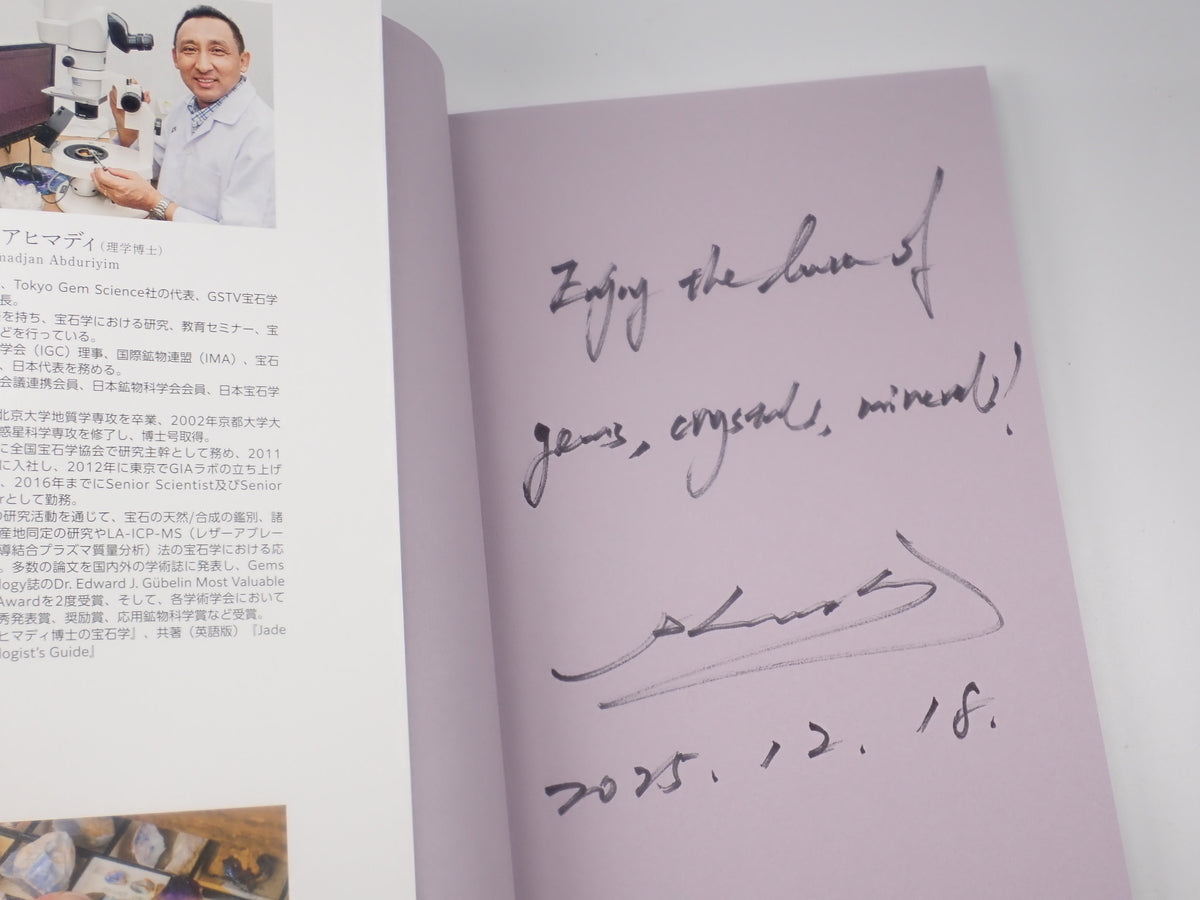 アヒマディ(理学博士)
madjan Abduriyim
、Tokyo Gem Science社の代表、GSTV宝石学
長。
を持ち、宝石学における研究、教育セミナー、宝
どを行っている。
学会（IGC）理事、国際鉱物連盟（IMA）、宝石
、日本代表を務める。
会議連携会員、日本鉱物科学会会員、日本宝石学
北京大学地質学専攻を卒業、2002年京都大学大
惑星科学専攻を修了し、博士号取得。
に全国宝石学協会で研究主幹として務め、2011
に入社し、2012年に東京でGIAラボの立ち上げ
、2016年までにSenior Scientist及びSenior
rとして勤務。
の研究活動を通じて、宝石の天然/合成の鑑別、諸
産地同定の研究やLA-ICP-MS（レザーアブレー
導結合プラズマ質量分析）法の宝石学における応
。多数の論文を国内外の学術誌に発表し、Gems
logy誌のDr. Edward J. Gübelin Most Valuable
Awardを2度受賞、そして、各学術学会において
秀発表賞、奨励賞、応用鉱物科学賞など受賞。
ヒマディ博士の宝石学』、共著（英語版）『Jade
logist's Guide』
Enjoy the of
gems, crystals, minerals!
2025. 12. 18.